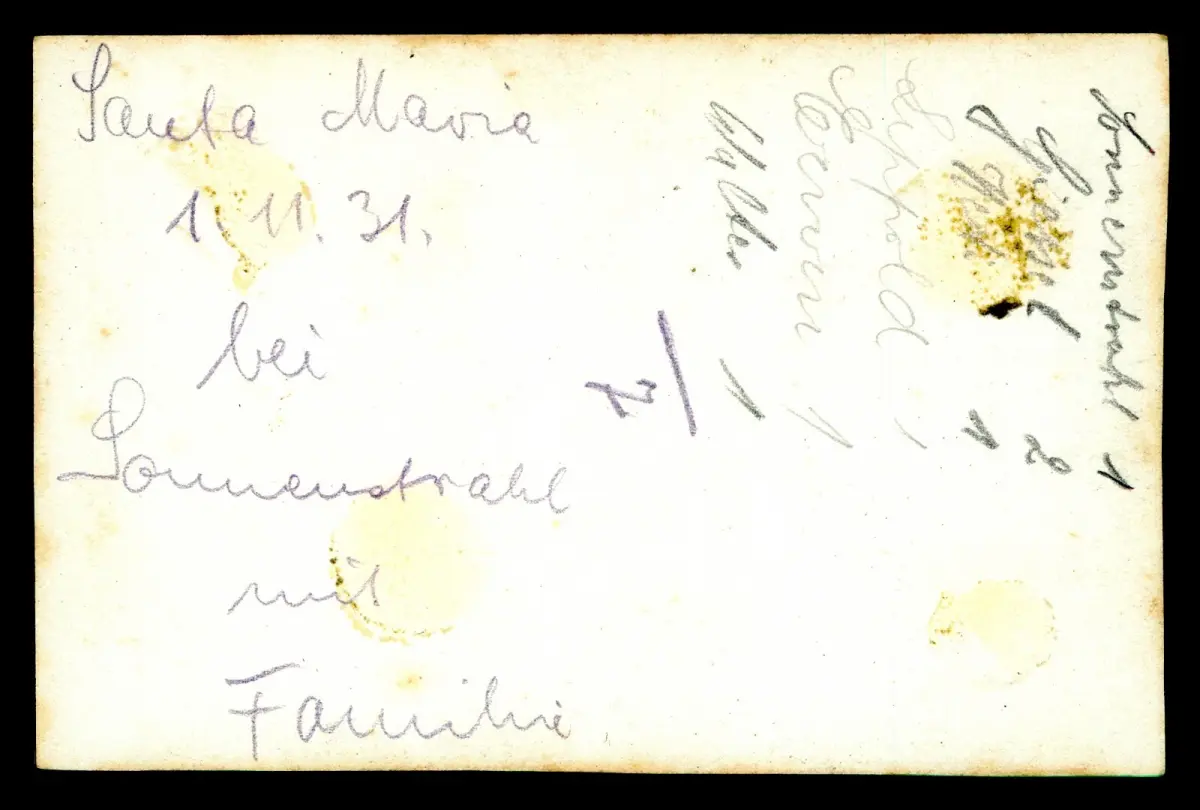 Santa Maria
1. 11. 31.
bei
Sonnenstrahl
mit
Familie
Sonnenstrahl 1
2
1
Lippold 1
Erwin 1
Walter 1
7/